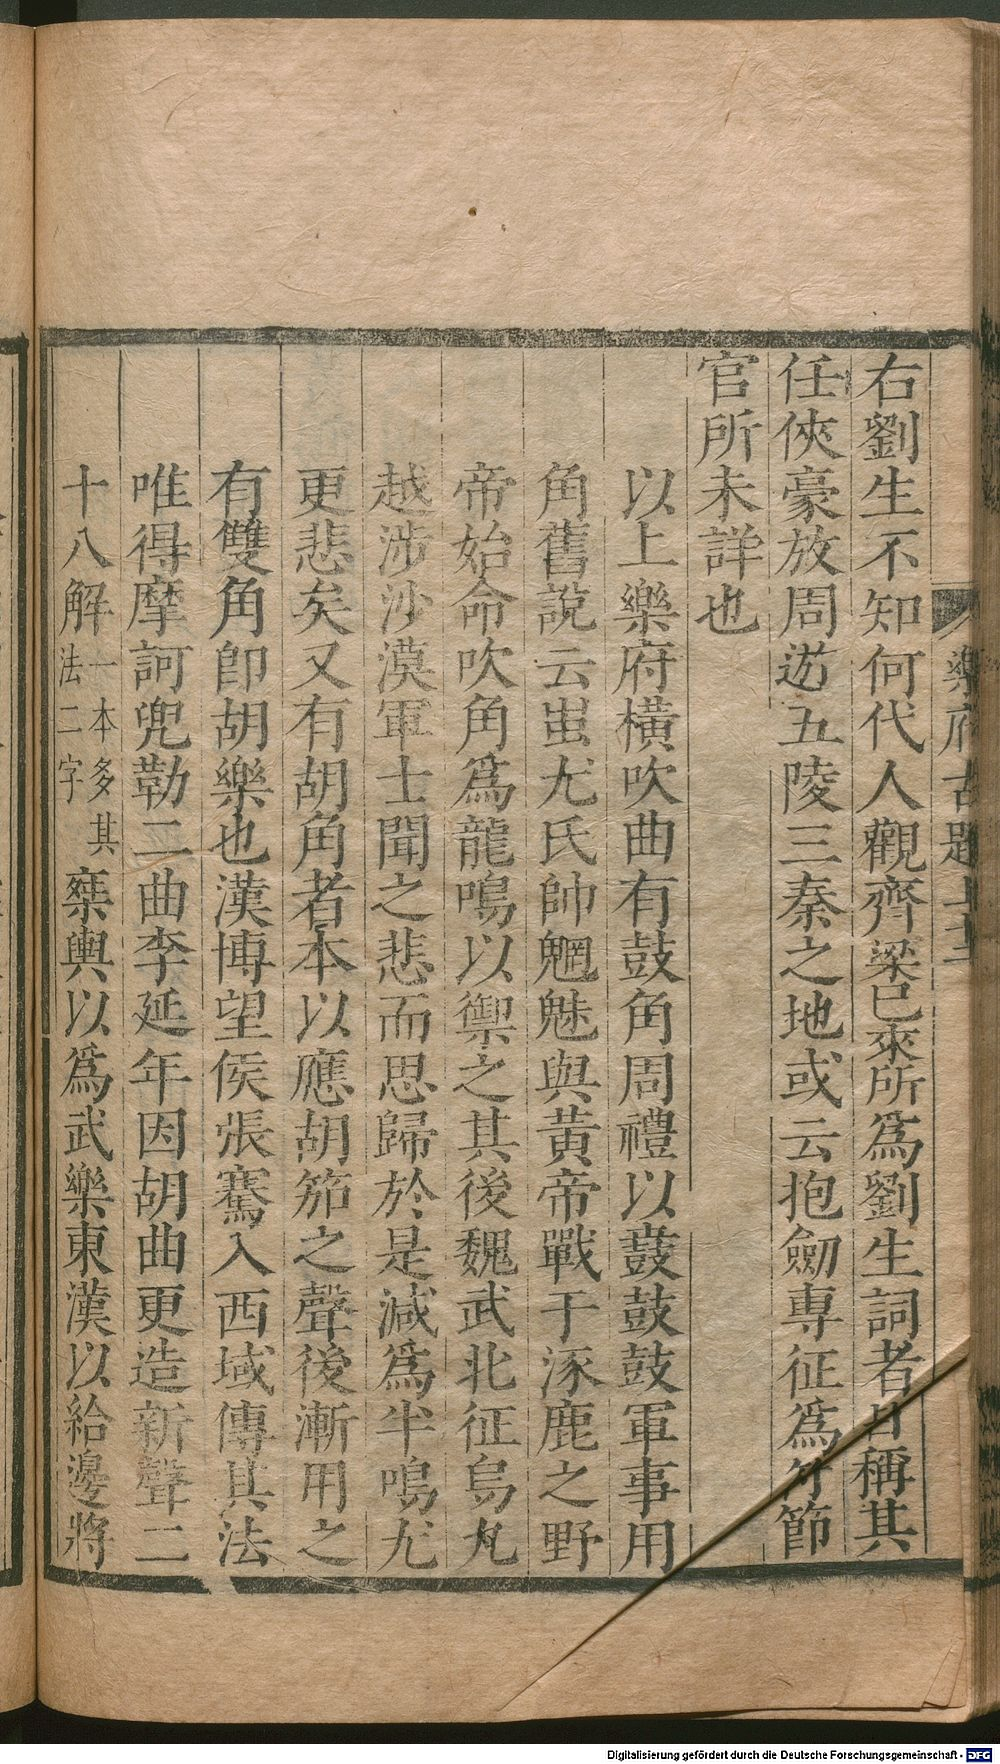 右劉生不知何代人觀齊梁已來所爲劉生詞者皆稱其
任俠豪放周逰五陵三秦之地或云抱劒專征爲符節
官所未詳也
以上樂府橫吹曲有鼓角周禮以鼖鼓鼓軍事用
角舊說云蚩尤氏帥魍魅與黃帝戰于涿鹿之野
帝始命吹角爲龍鳴以禦之其後魏武北征烏丸
越涉沙漠軍士聞之悲而思歸於是減爲半鳴尤
更悲矣又有胡角者本以應胡笳之聲後漸用之
有雙角卽胡樂也漢博望侯張騫入西域傳其法
唯得摩訶兜勒二曲李延年因胡曲更造新聲二
十八解一本多其法二字椉輿以爲武樂東漢以給邊將
樂府古題上
Digitalisierung gefördert durch die Deutsche Forschungsgemeinschaft - DFG